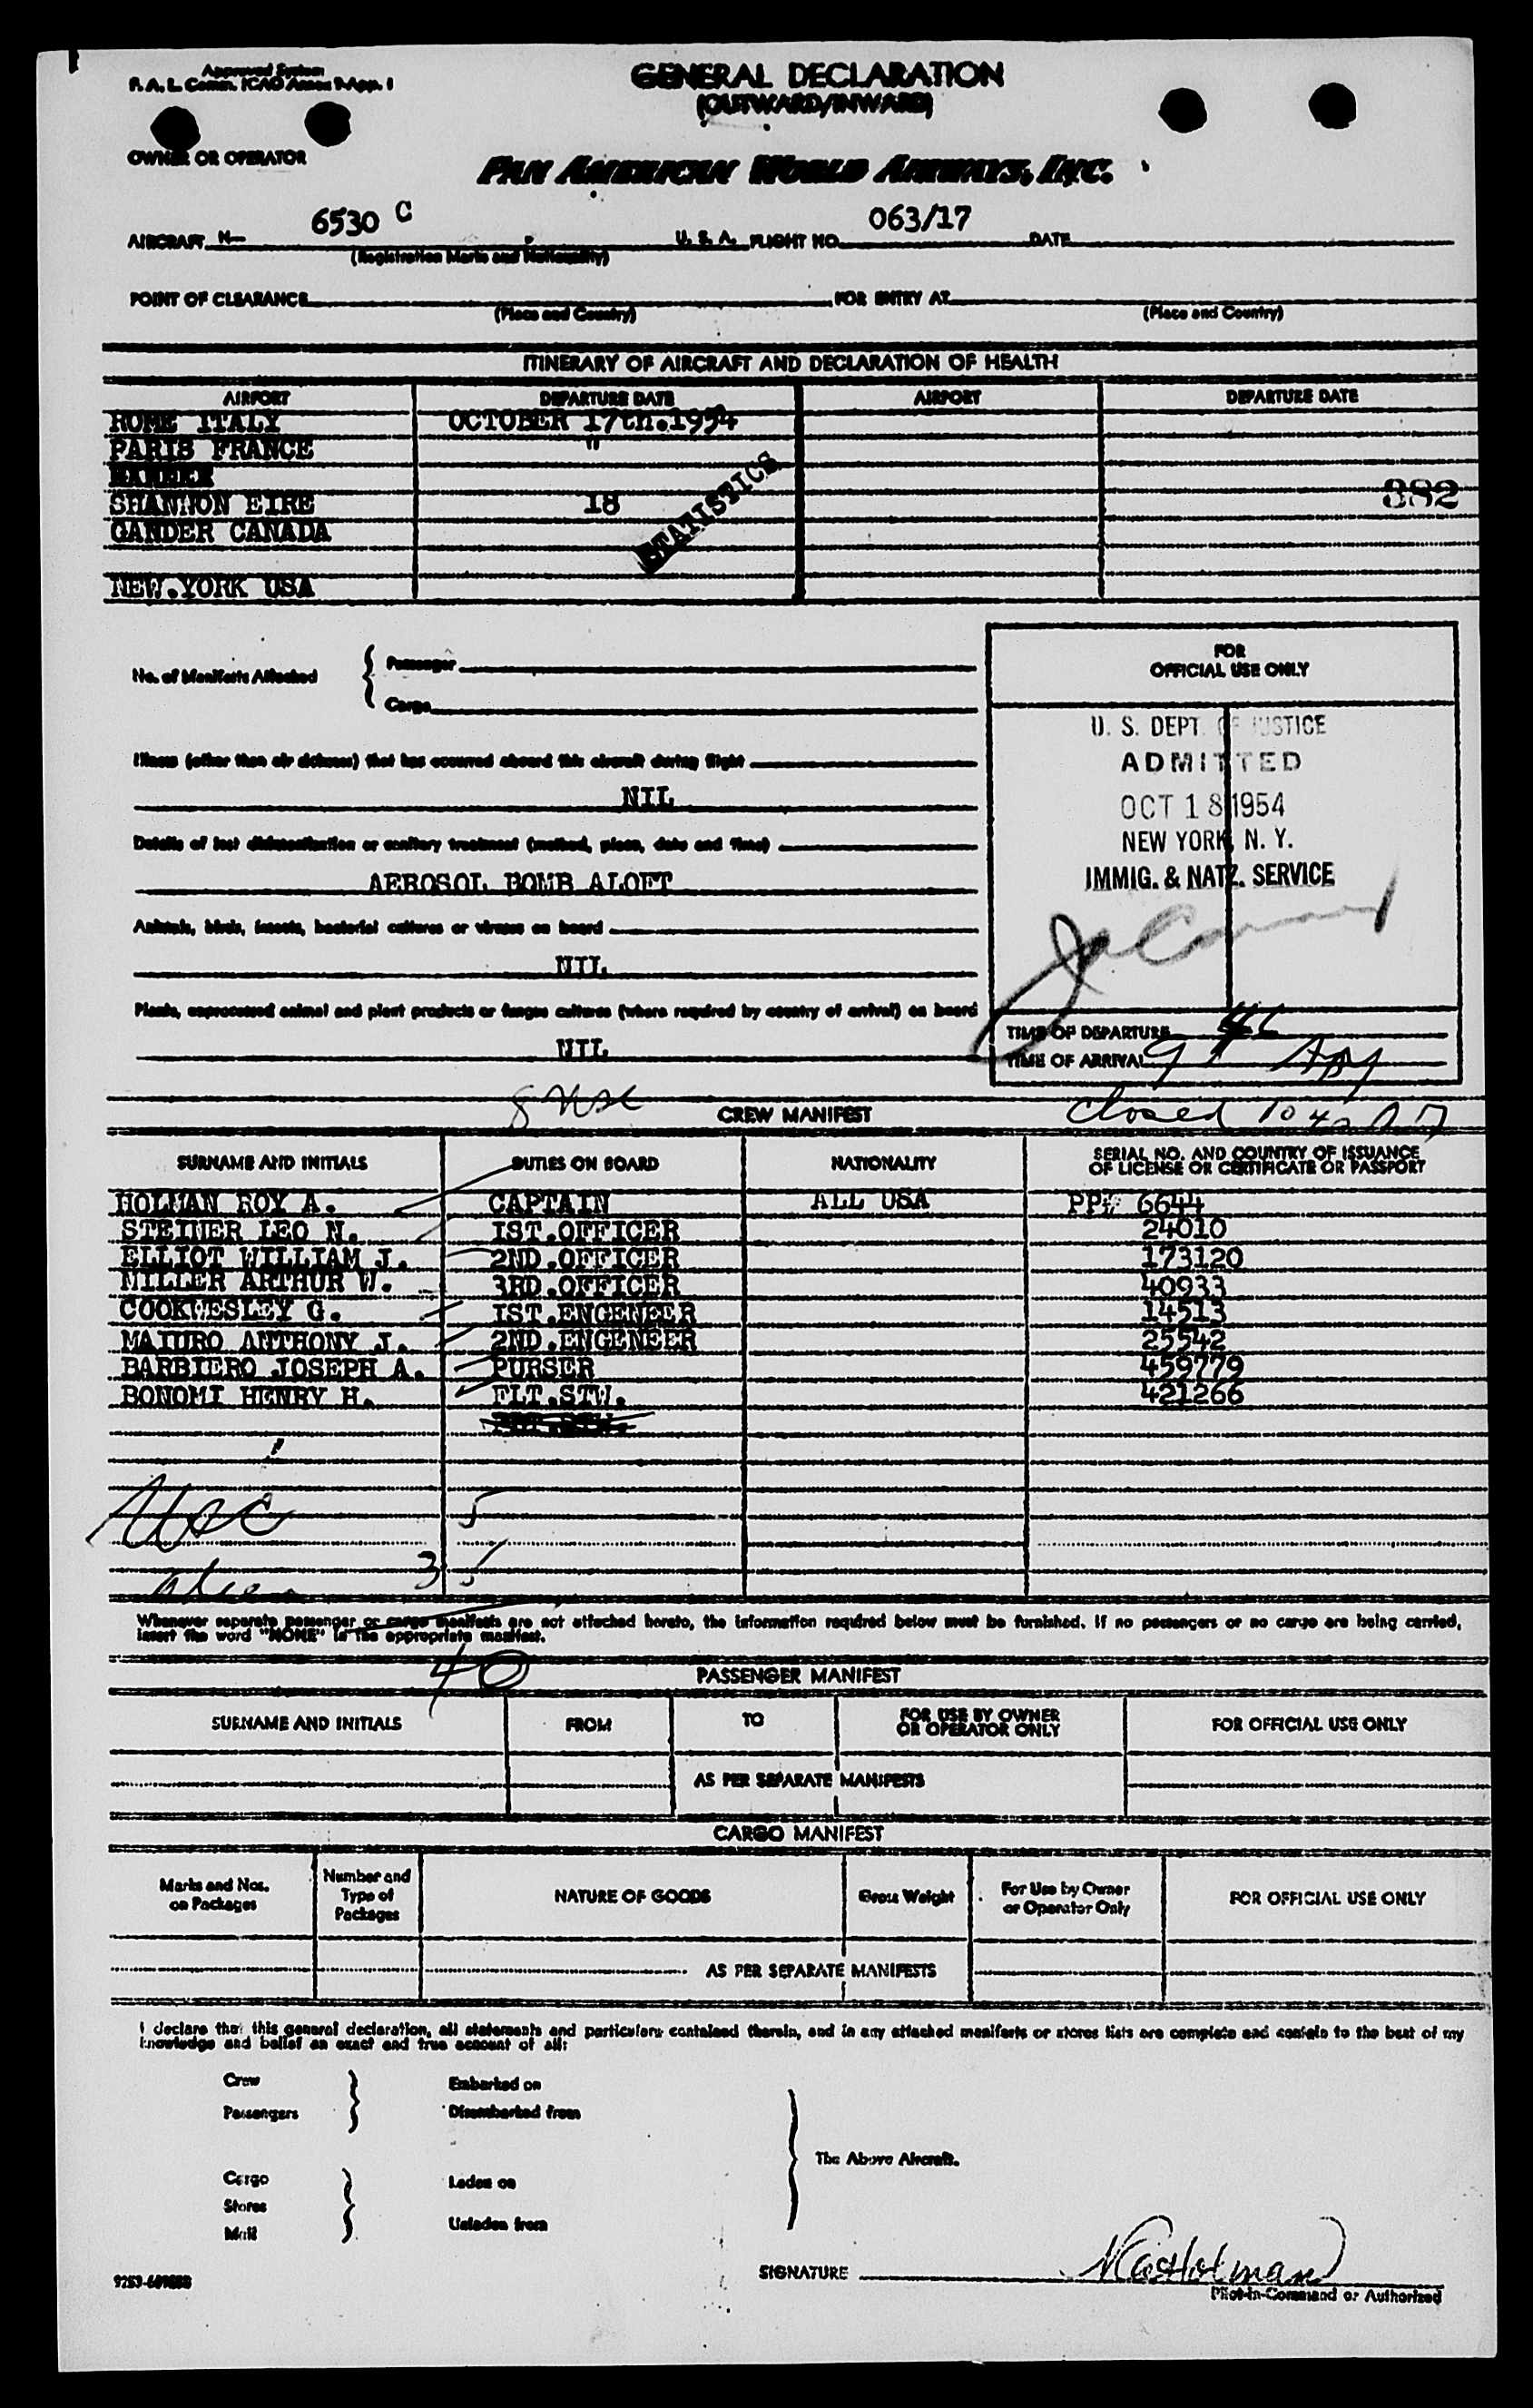 Approved System
F. A. L. Comm. ICAO Annex 9-App. I
GENERAL DECLARATION
(OUTWARD/INWARD)
OWNER OR OPERATOR
PAN AMERICAN WORLD AIRWAYS, INC.
AIRCRAFT N— 6530 C U. S. A. FLIGHT NO. 063/17 DATE
(Registration Marks and Nationality)
POINT OF CLEARANCE FOR ENTRY AT
(Place and Country) (Place and Country)
ITINERARY OF AIRCRAFT AND DECLARATION OF HEALTH
AIRPORT DEPARTURE DATE AIRPORT DEPARTURE DATE
ROME ITALY OCTOBER 17th.1954
PARIS FRANCE "
SHANNON EIRE 18 382
STATISTICS
GANDER CANADA
NEW.YORK USA
No. of Manifests Attached { Passenger
Cargo
FOR
OFFICIAL USE ONLY
U. S. DEPT. OF JUSTICE
ADMITTED
OCT 18 1954
NEW YORK, N. Y.
IMMIG. & NATZ. SERVICE
Illness (other than air sickness) that has occurred aboard this aircraft during flight
NIL
Details of last disinsectization or sanitary treatment (method, place, date and time)
AEROSOL BOMB ALOFT
Animals, birds, insects, bacterial cultures or viruses on board
NIL
Plants, unprocessed animal and plant products or fungus cultures (where required by country of arrival) on board
NIL
TIME OF DEPARTURE
TIME OF ARRIVAL
8 usc CREW MANIFEST closed 10 42
SURNAME AND INITIALS DUTIES ON BOARD NATIONALITY SERIAL NO. AND COUNTRY OF ISSUANCE
OF LICENSE OR CERTIFICATE OR PASSPORT
HOLMAN ROY A. CAPTAIN ALL USA PP# 6644
STEINER LEO N. IST.OFFICER 24010
ELLIOT WILLIAM J. 2ND.OFFICER 173120
MILLER ARTHUR W. 3RD.OFFICER 40933
COOKWESLEY G. IST.ENGENEER 14513
MAIURO ANTHONY J. 2ND.ENGENEER 25542
BARBIERO JOSEPH A. PURSER 459779
BONOMI HENRY H. FLT.STW. 421266
USC 5
alien 35
Whenever separate passenger or cargo manifests are not attached hereto, the information required below must be furnished. If no passengers or no cargo are being carried,
insert the word "NONE" in the appropriate manifest.
40
PASSENGER MANIFEST
SURNAME AND INITIALS FROM TO FOR USE BY OWNER
OR OPERATOR ONLY FOR OFFICIAL USE ONLY
AS PER SEPARATE MANIFESTS
CARGO MANIFEST
Marks and Nos.
on Packages Number and
Type of
Packages NATURE OF GOODS Gross Weight For Use by Owner
or Operator Only FOR OFFICIAL USE ONLY
AS PER SEPARATE MANIFESTS
I declare that this general declaration, all statements and particulars contained therein, and in any attached manifests or stores lists are complete and contain to the best of my
knowledge and belief an exact and true account of all:
Crew Embarked on
Passengers Disembarked from
The Above Aircraft.
Cargo Laden on
Stores
Mail Unladen from
SIGNATURE Holman
Pilot-in-Command or Authorized